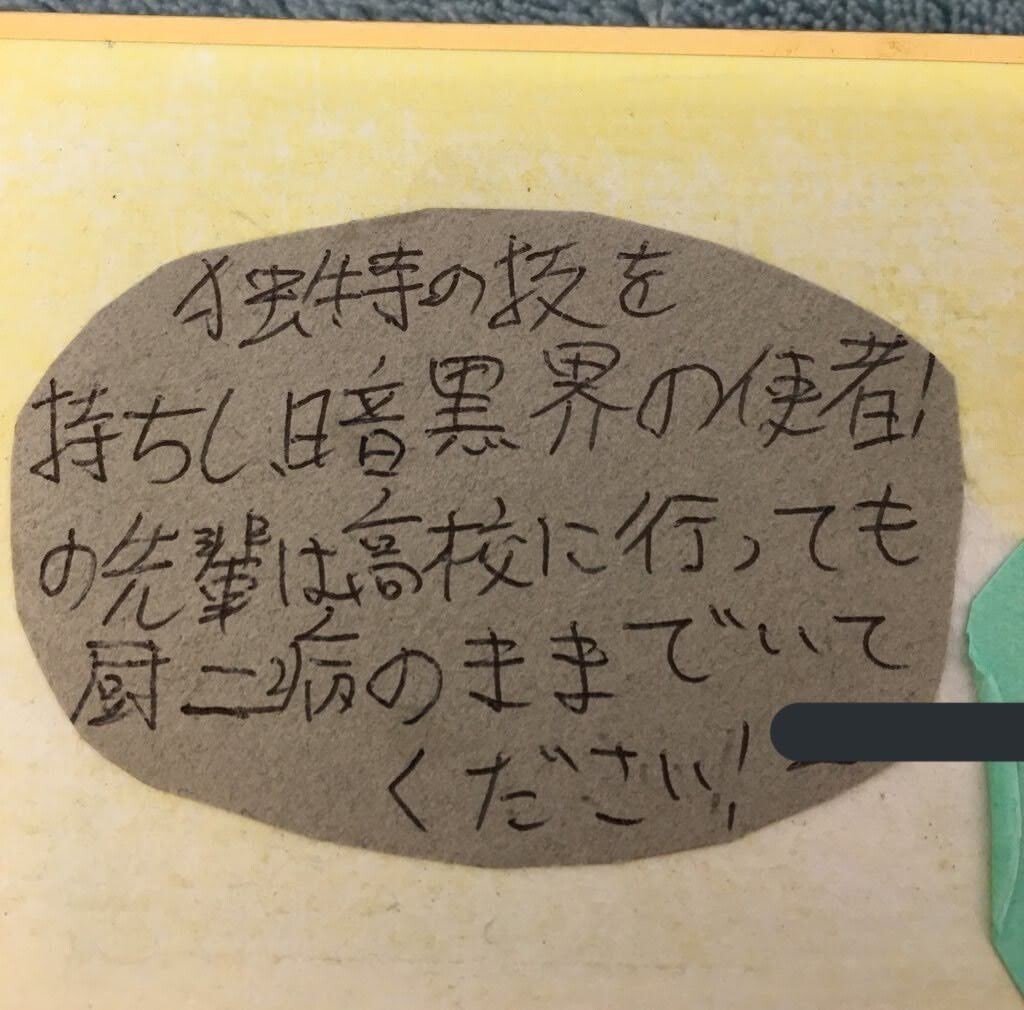 独特の技を
持ちし、暗黒界の使者!
の先輩は高校に行っても
厨二病のままでいて
ください!